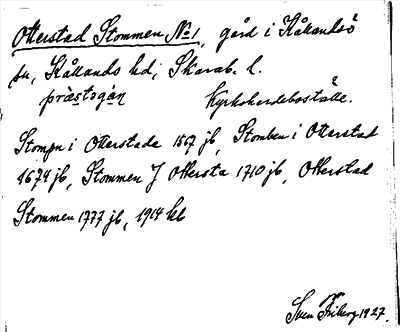 Otterstad Stommen No 1, gård i Kållandsö
sn, Kållands hd; Skarab. l.
prästogàn Kyrkoherdeboställe.
Stompn i Otterstada 1567 jb, Stomben i Otterstad
1674 jb, Stommen J Ottersta 1710 jb, Otterstad
Stommen 1777 jb, 1914 kb
Sven Friberg 1927.